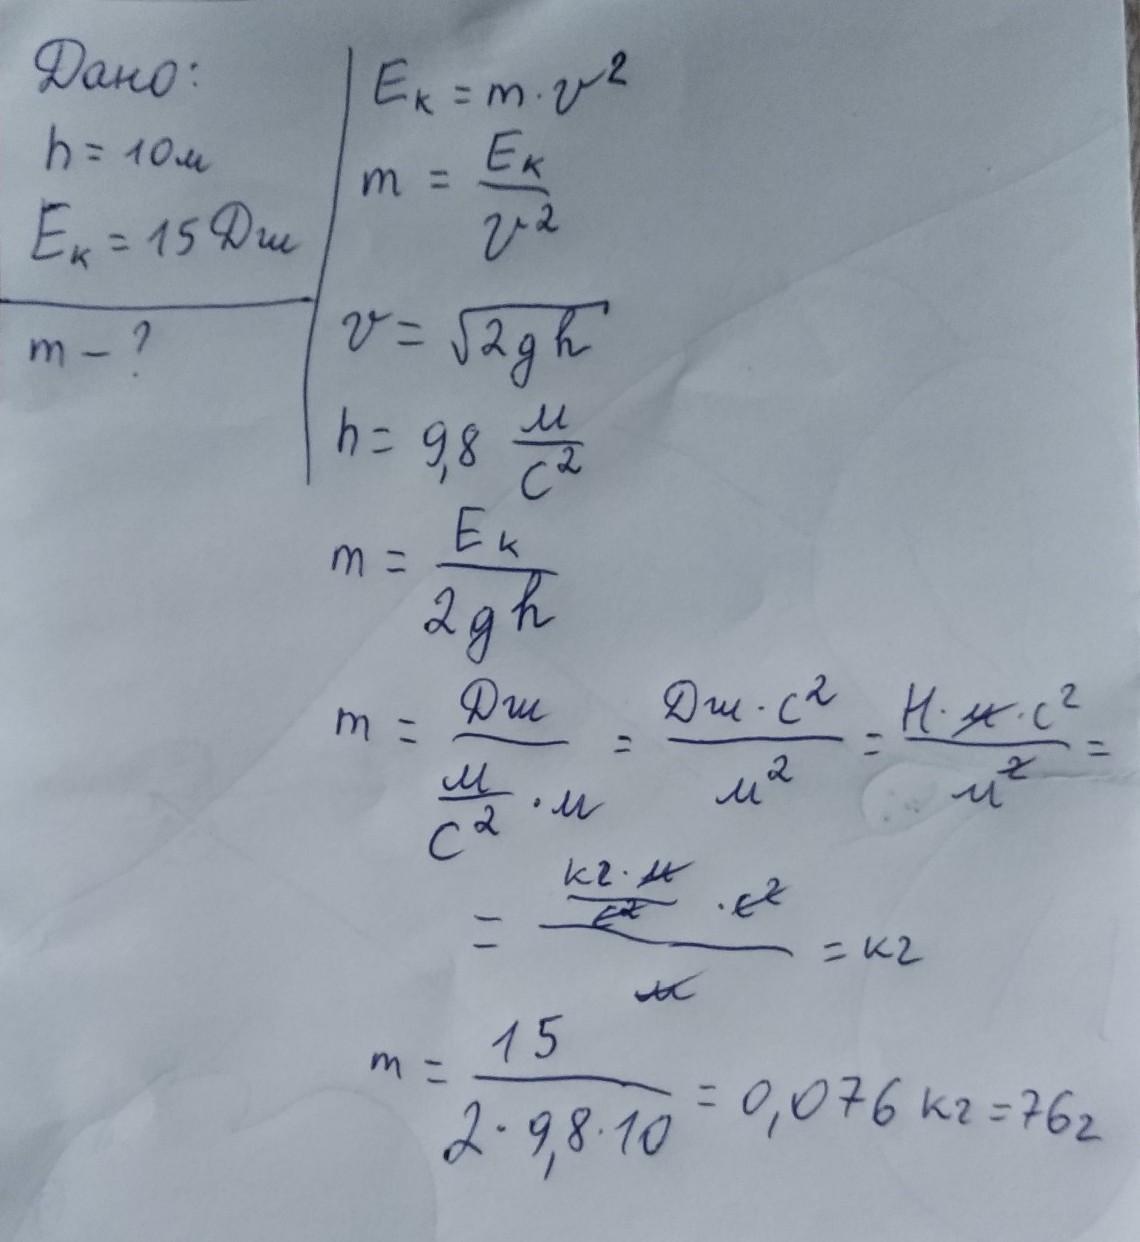 Дано:
h = 10м
Eк = 15 Дж
m - ?
Eк = m · v²
m = Eк / v²
v = √2gh
h = 9,8 м/с²
m = Eк / 2gh
m = Дж / (м/с² · м) = Дж · с² / м² = Н · м · с² / м² =
= (кг · м / с² · с²) / м = кг
m = 15 / (2 · 9,8 · 10) = 0,076 кг = 76г